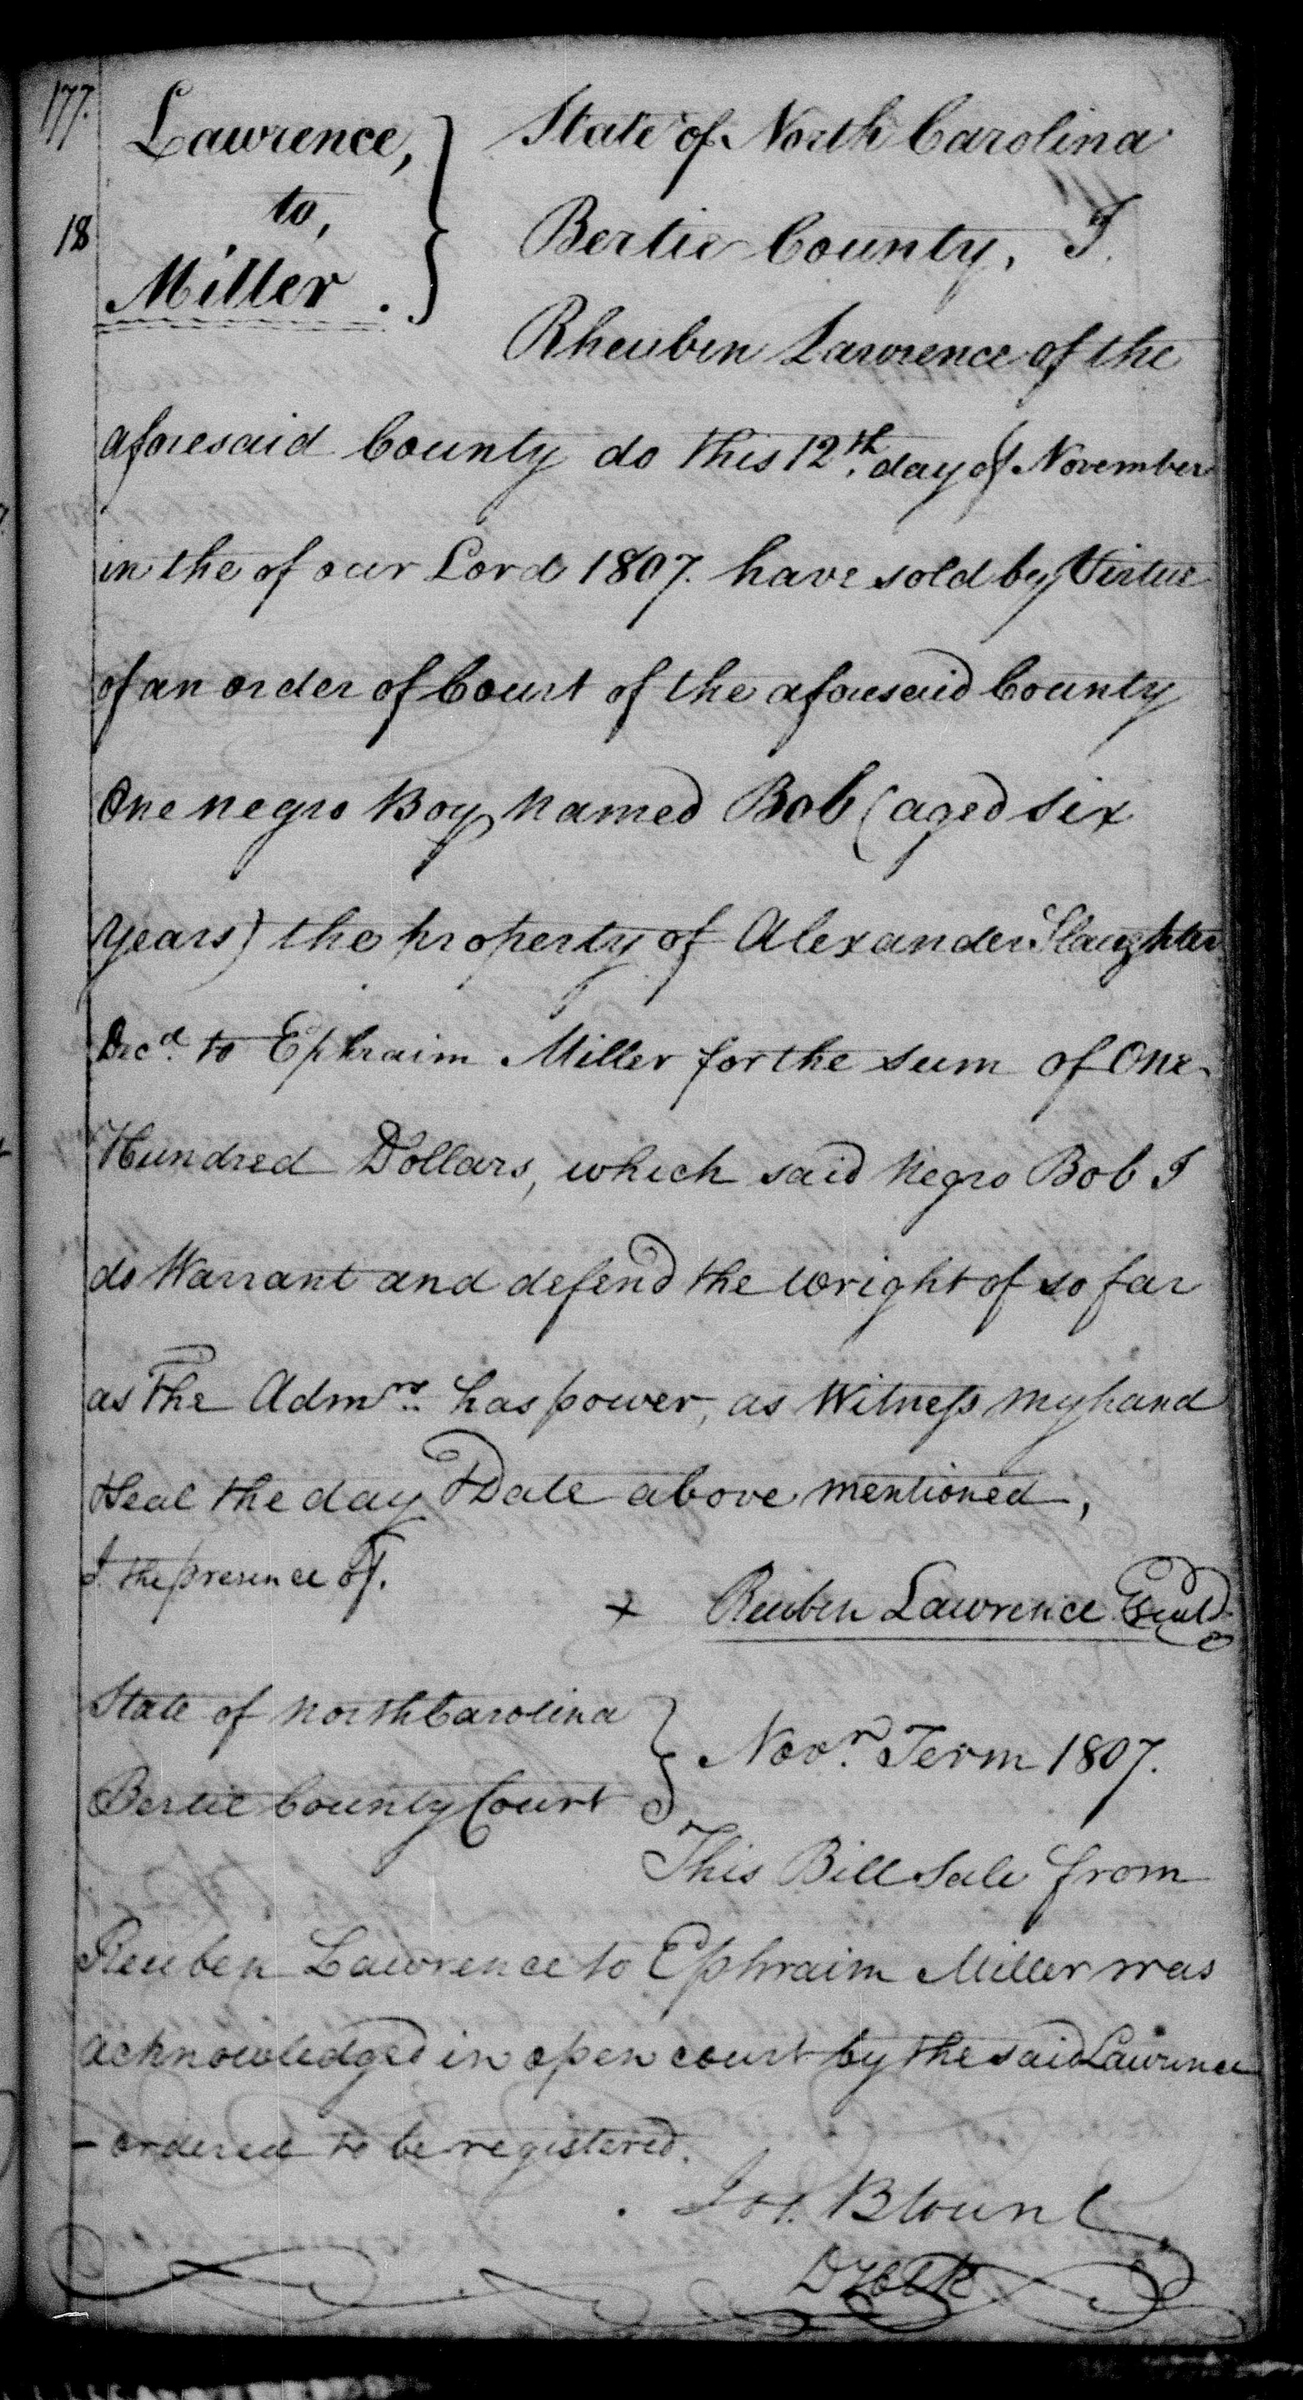 177.
Lawrence,
to,
18
Miller.
State of North Carolina
Bertie County, I
Rheuben Lawrence of the
aforesaid County do this 12th. day of November
in the of our Lord 1807. have sold by Virtue
of an order of Court of the aforesaid County
One negro Boy named Bob (aged six
years) the property of Alexander Slaughter
Decd. to Ephraim Miller for the sum of One
Hundred Dollars, which said Negro Bob I
do Warrant and defend the wright of so far
as The Admrs. has power, as Witness my hand
&seal the day &Date above mentioned,
I. the presence of.
+ Reuben Lawrence Seal
State of North Carolina
Bertie County Court
Novr. Term 1807.
This Bill Sale from
Reuben Lawrence to Ephraim Miller was
acknowledged in open court by the said Lawrence
- ordered to be registered.
Jos. Blount